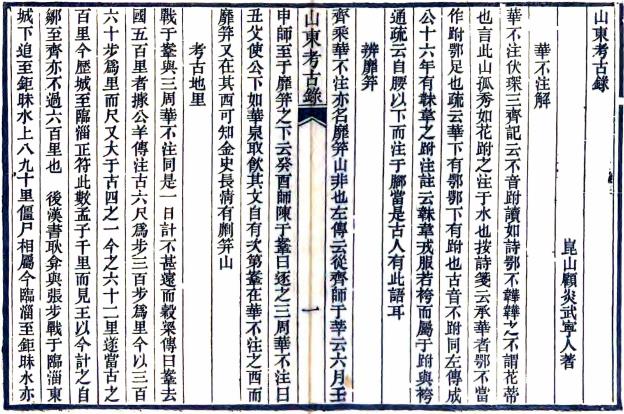 山東考古錄
崑山顧炎武寧人著
華不注解
華不注伏琛三齊記云不音跗讀如詩鄂不韡韡之不謂花蒂
也言此山孤秀如花跗之注于水也按詩箋云承華者鄂不當
作跗鄂足也疏云華下有鄂鄂下有跗也古音不跗同左傳成
公十六年有韎韋之跗注註云韎韋戎服若袴而屬于跗與袴
通疏云自腰以下而注于腳當是古人有此語耳
辨靡笄
齊乘華不注亦名靡笄山非也左傳云從齊師于莘云六月壬
山東考古錄
一
申師至于靡笄之下云癸酉師陳于鞌曰逐之三周華不注曰
丑父使公下如華泉取飲其文自有次第鞌在華不注之西而
靡笄又在其西可知金史長清有劘笄山
考古地里
戰于鞌與三周華不注同是一日計不甚遠而穀梁傳曰鞌去
國五百里者據公羊傳注古六尺爲步三百步爲里今以三百
六十步爲里而尺又大于古四之一今之六十二里遂當古之
百里今歷城至臨淄正符此數孟子千里而見王以今計之自
鄒至齊亦不過六百里也 後漢書耿弇與張步戰于臨淄東
城下追至鉅昧水上八九十里僵尸相屬今臨淄至鉅昧水亦